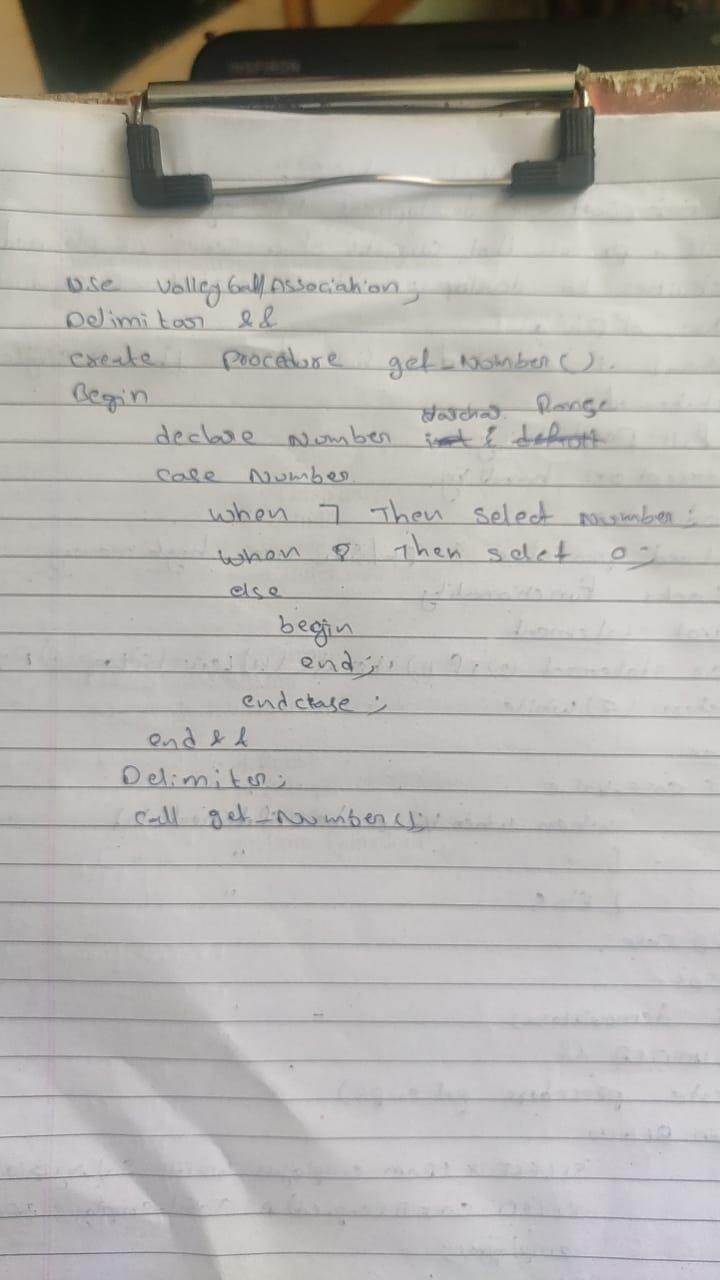 INSPIRON
use VolleyballAssociation;
Delimiter &&
create procedure get_Number().
Begin
Varchar Range
declare Number int
case Number
when 7 Then select Number;
when Then selct 0;
else
begin
end;
end case;
end &&
Delimiter;
call get_Number();